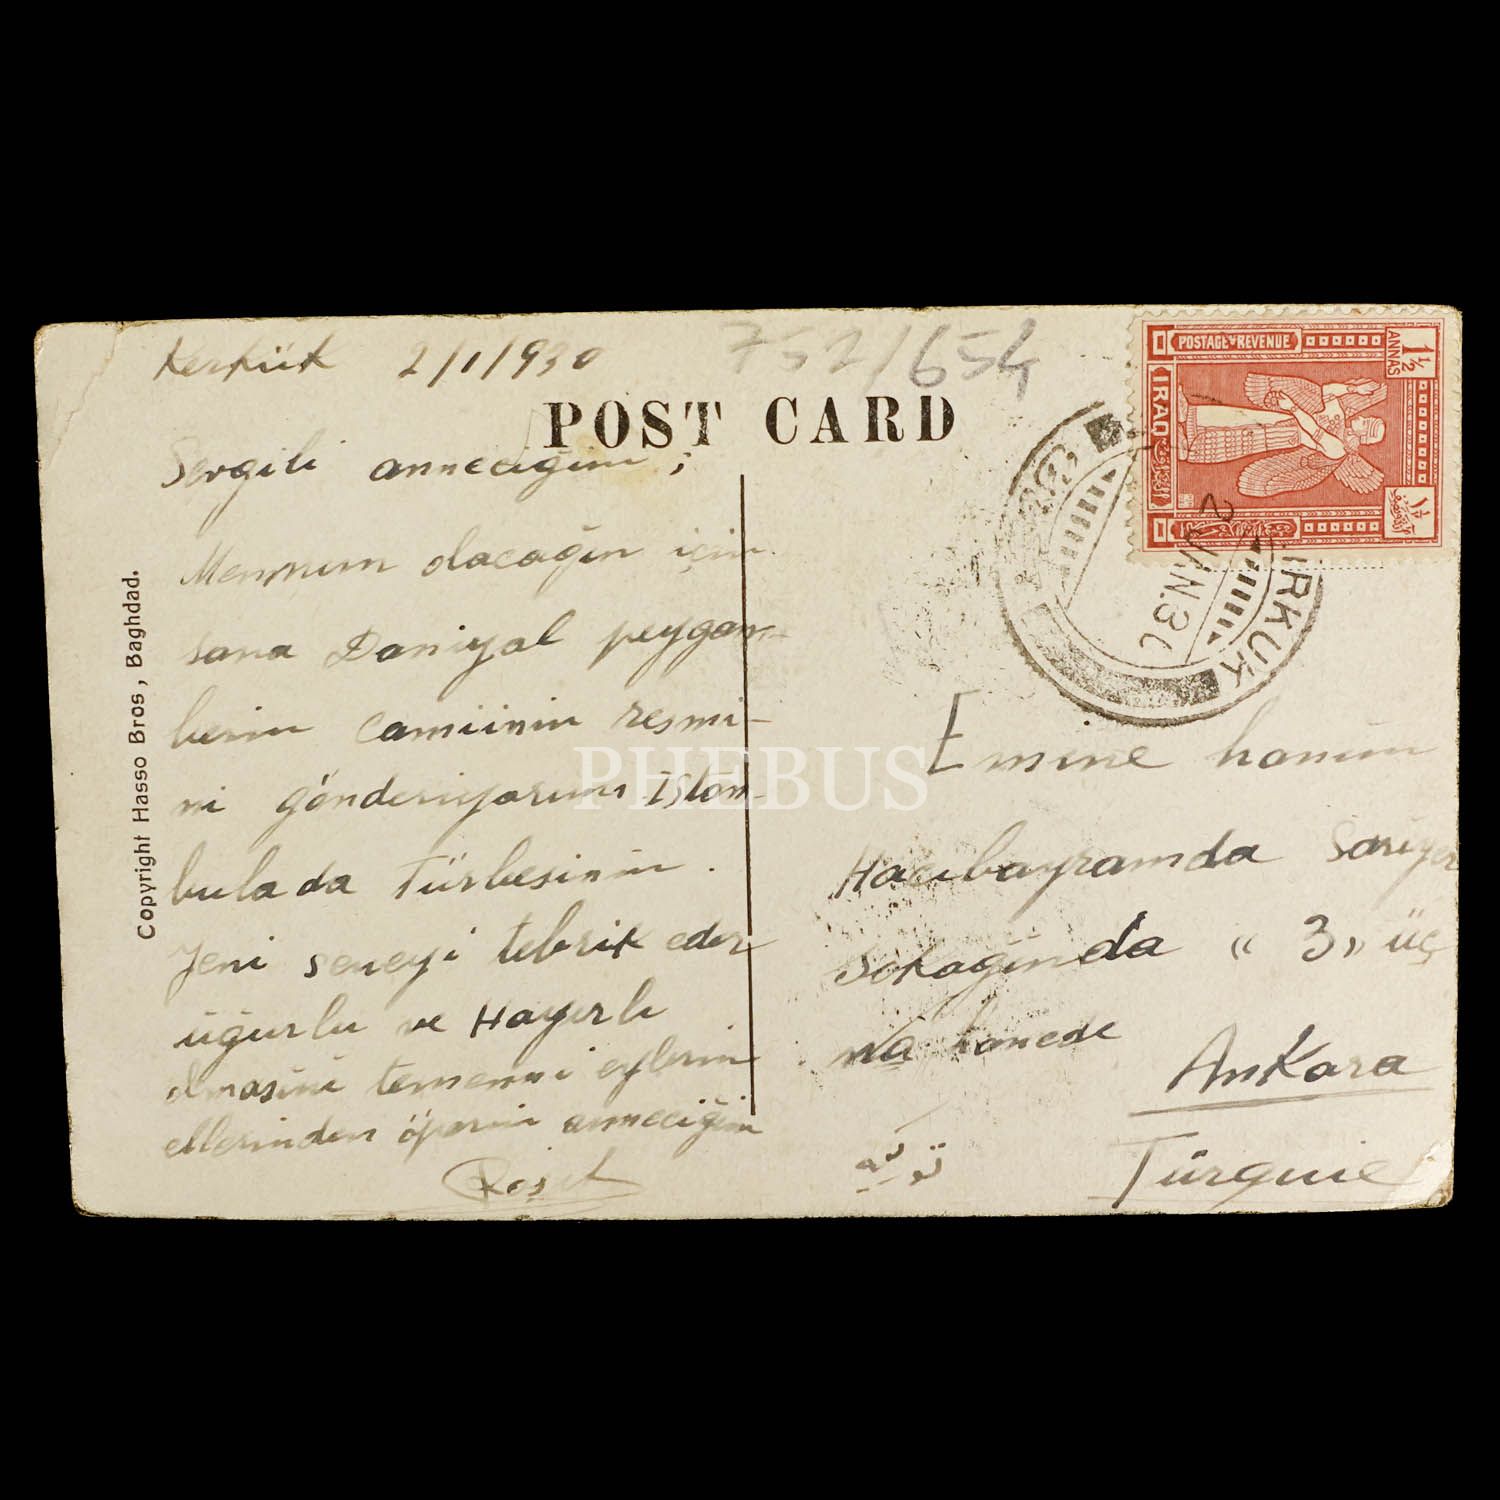 Kerkük 2/1/930
752/654
POST CARD
Sevgili anneciğim ;
Memnun olacağın için
sana Daniyal peygam-
berin camiinin resmi-
ni gönderiyorum İstan-
bulada Türbesinin .
Yeni seneyi tebrik eder
uğurlu ve Hayırlı
olmasını temenni eylerim
ellerinden öperim anneciğim
Copyright Hasso Bros, Baghdad.
POSTAGE & REVENUE
1½ ANNAS
IRAQ
KIRKUK
2 JAN.30
PHEBUS
Emine hanım
Hacıbayramda Sarıyer
sokağında « 3 » üç
hanede
Ankara
Türquie